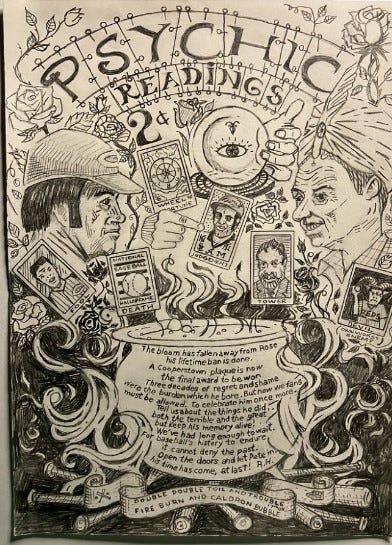 PSYCHIC
READINGS
2¢
WHEEL
FORTUNE
NATIONAL
BASEBALL
HALL OF FAME
DEATH
TOWER
DEVIL
The bloom has fallen away from Rose
his lifetime ban is done.
A Cooperstown plaque is now
the final award to be won.
Three decades of regret and shame
were the burden which he bore. But now we fans
must be allowed, To celebrate him once more.
Tell us about the things he did
both the terrible and the great
but keep his memory alive;
We've had long enough to wait.
For baseball's history to endure
it cannot deny the past.
Open the doors and let Pete in,
his time has come, at last! R.H.
DOUBLE DOUBLE TOIL AND TROUBLE
FIRE BURN AND CALDRON BUBBLE